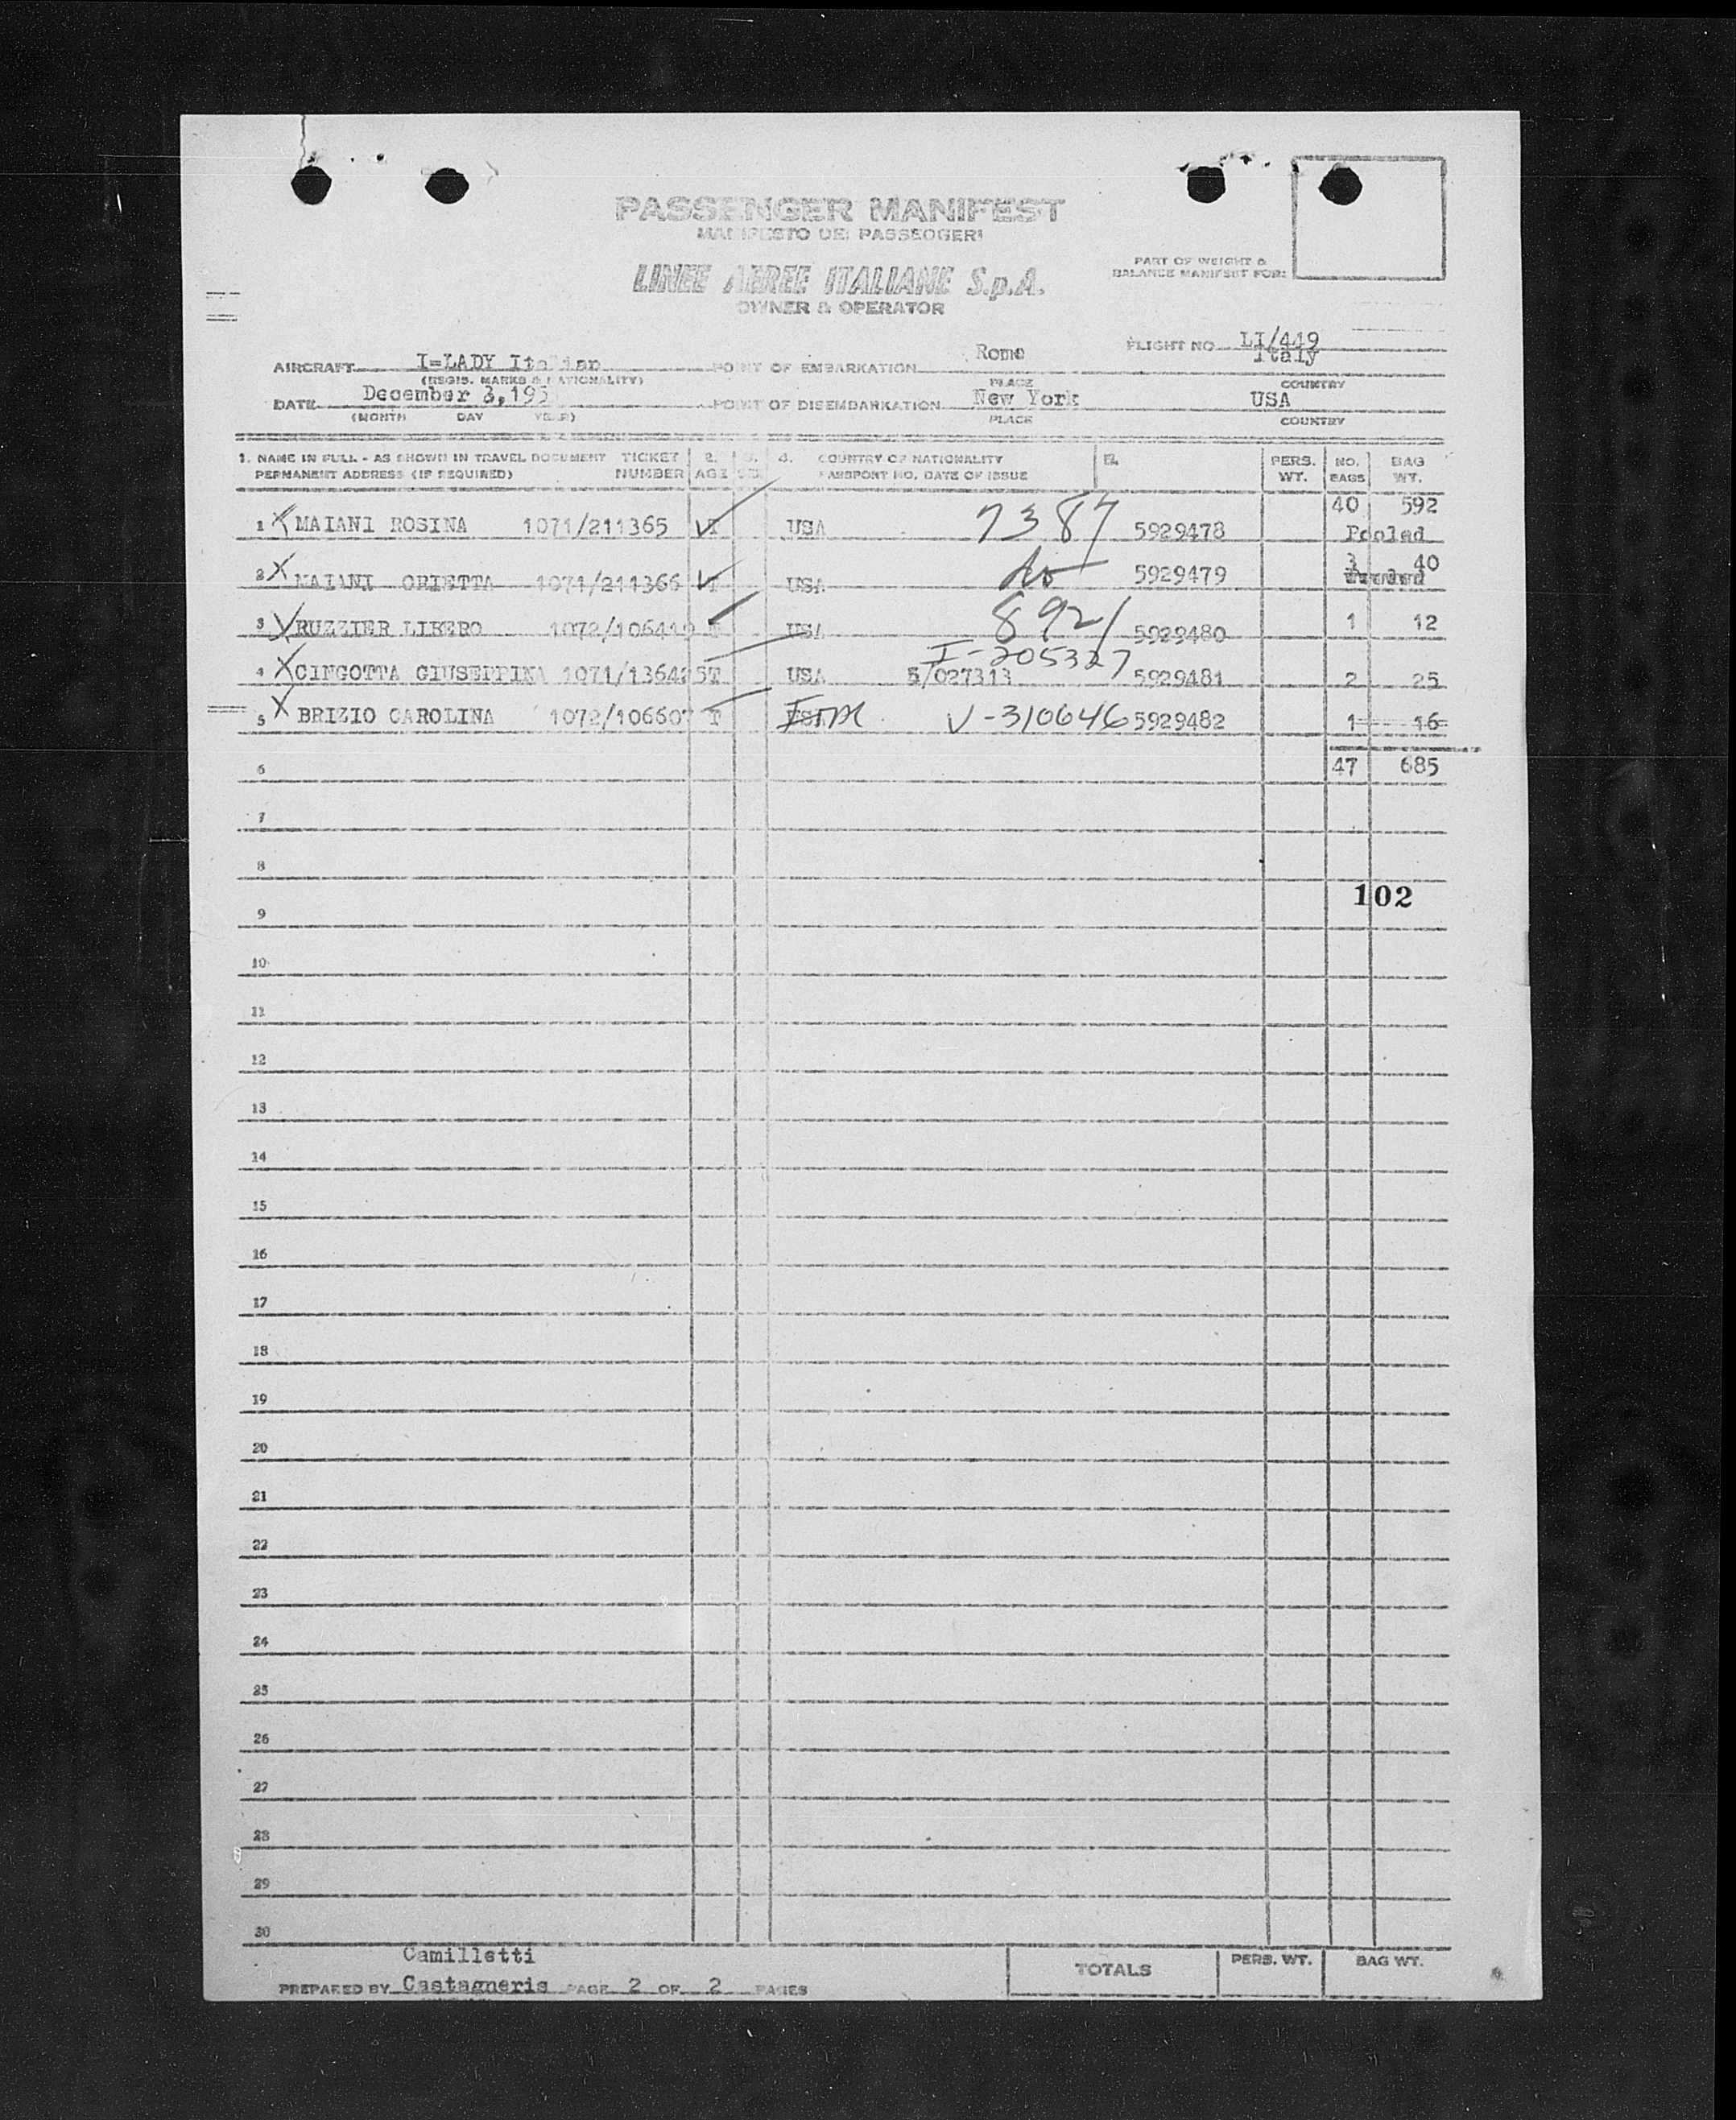 PASSENGER MANIFEST
MANIFESTO DEI PASSEGGERI
LINEE AEREE ITALIANE S.p.A.
OWNER & OPERATOR
PART OF WEIGHT &
BALANCE MANIFEST FOR:
FLIGHT NO LI/449
AIRCRAFT I-LADY Italian POINT OF EMBARKATION Rome Italy
(REGIS. MARKS & NATIONALITY) PLACE COUNTRY
DATE December 3,195 POINT OF DISEMBARKATION New York USA
(MONTH DAY YEAR) PLACE COUNTRY
1. NAME IN FULL - AS SHOWN IN TRAVEL DOCUMENT TICKET 2. 3. 4. COUNTRY OF NATIONALITY PERS. NO. BAG
PERMANENT ADDRESS (IF REQUIRED) NUMBER AGE PASSPORT NO. DATE OF ISSUE WT. BAGS WT.
40 592
1 X MAIANI ROSINA 1071/211365 T USA 7387 5929478 Pooled
2 X MAIANI ORIETTA 1071/211366 T USA do 5929479 3 40
3 X RUZZIER LIBERO 1072/106419 T USA 8921 5929480 1 12
I-205327
4 X CINGOTTA GIUSEPPINA 1071/136425 T USA 5/027313 5929481 2 25
5 X BRIZIO CAROLINA 1072/106607 T V-310646 5929482 1 16
6 47 685
7
8
102
9
10
11
12
13
14
15
16
17
18
19
20
21
22
23
24
25
26
27
28
29
30
Camilletti
PREPARED BY Castagneris PAGE 2 OF 2 PAGES
TOTALS PERS. WT. BAG WT.